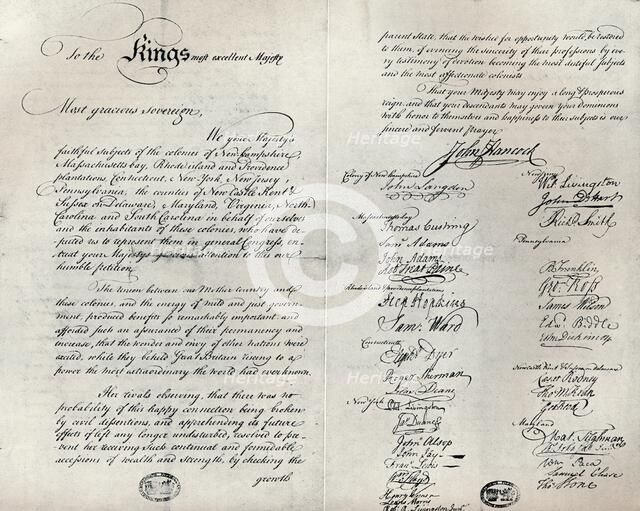 To the Kings most excellent Majesty
Most gracious Sovereign,
We your Majesty's
faithful subjects of the colonies of Newhampshire,
Massachusetts bay, Rhode island and Providence
plantations, Connecticut, New York, New Jersey,
Pennsylvania, the counties of New Castle Kent &
Sussex on Delaware, Maryland, Virginia, North
Carolina and South Carolina in behalf of ourselves
and the inhabitants of these colonies, who have de-
puted us to represent them in general Congress, en-
treat your Majestys gracious attention to this our
humble petition.
The union between our Mother country and
these colonies, and the energy of mild and just govern-
ment, produced benefits so remarkably important and
afforded such an assurance of their permanency and
increase, that the wonder and envy of other nations were
excited, while they beheld Great Britain riseing to a
power the most extraordinary the world had ever known.
Her rivals observing, that there was no
probability of this happy connection being broken
by civil dissentions, and apprehending its future
effects if left any longer undisturbed, resolved to pre-
vent her receiving such continual and formidable
accessions of wealth and strength, by checking the
growth
parent State, that the wished for opportunity would be restored
to them, of evincing the sincerity of their professions by eve-
ry testimony of devotion becoming the most dutiful subjects
and the most affectionate colonists
That your Majesty may enjoy a long & prosperous
reign, and that your descendants may govern your dominions
with honor to themselves and happiness to their subjects is our
sincere and fervent prayer
John Hancock
Colony of New hampshire
John Langdon
Massachusetts bay
Thomas Cushing
Sam Adams
John Adams
Rob Treat Paine
Rhode island & providence plantations
Step Hopkins
Sam: Ward
Connecticut
Elipht Dyer
Roger Sherman
Silas Deane
New York
Phil. Livingston
Jas Duane
John Alsop
John Jay
Fran Lewis
Wm Floyd
Lewis Morris
Robt R Livingston Junr
New Jersey
Wil. Livingston
John De Hart
Richd Smith
Pennsylvania
B Franklin
Geo: Ross
James Wilson
Edw Biddle
John Dickinson
Newcastle Kent & Sussex on Delaware
Caesar Rodney
Tho M: Kean
Geo Read
Maryland
Mat. Tilghman
Wm Paca
Samuel Chase
Thos Stone
Heritage
Heritage
Heritage
Heritage
Heritage
Heritage
C